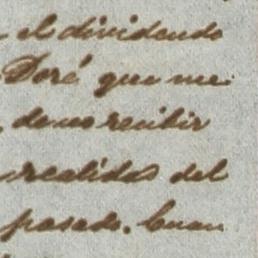 el dividendo
Doré que me
demo recibir
realidos del
pasado. Cuan